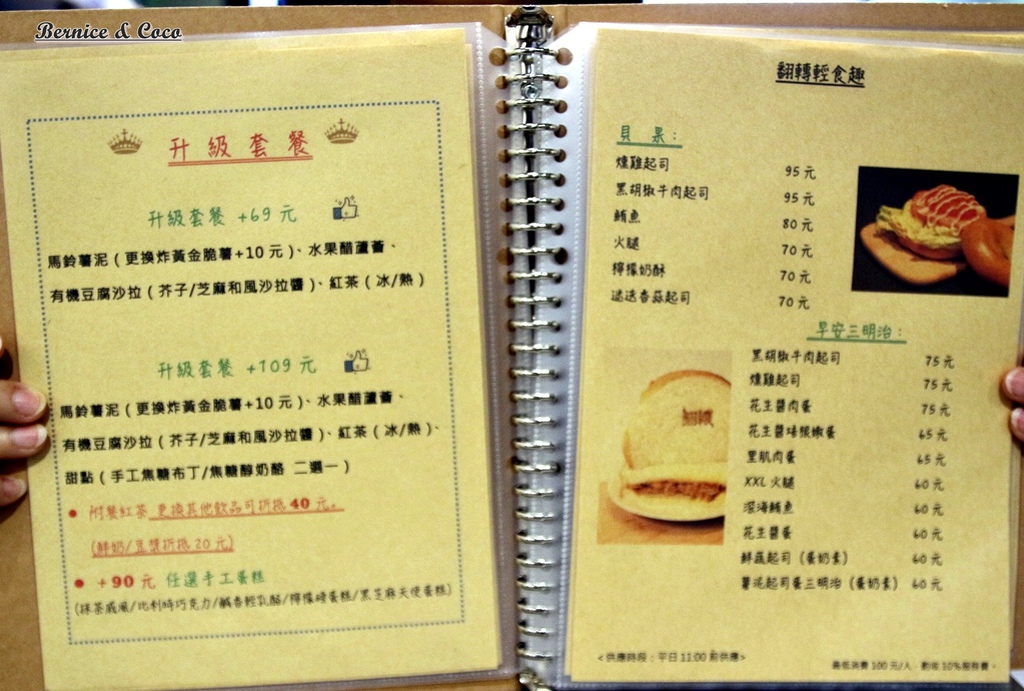 Bernice & Coco
升級套餐
升級套餐 +69 元
馬鈴薯泥（更換炸黃金脆薯+10 元）、水果醋蘆薈、
有機豆腐沙拉（芥子/芝麻和風沙拉醬）、紅茶（冰/熱）
升級套餐 +109 元
馬鈴薯泥（更換炸黃金脆薯+10 元）、水果醋蘆薈、
有機豆腐沙拉（芥子/芝麻和風沙拉醬）、紅茶（冰/熱）、
甜點（手工焦糖布丁/焦糖醇奶酪 二選一）
● 附餐紅茶 更換其他飲品可折抵 40 元。
(鮮奶/豆漿折抵 20 元)
● +90 元 任選手工蛋糕
(抹茶戚風/比利時巧克力/鹹香輕乳酪/檸檬磅蛋糕/黑芝麻天使蛋糕)
翻轉輕食趣
貝果：
燻雞起司 95 元
黑胡椒牛肉起司 95 元
鮪魚 80 元
火腿 70 元
檸檬奶酥 70 元
迷迭香蒜起司 70 元
早安三明治：
黑胡椒牛肉起司 75 元
燻雞起司 75 元
花生醬肉蛋 75 元
花生醬培根嫩蛋 65 元
里肌肉蛋 65 元
XXL 火腿 60 元
深海鮪魚 60 元
花生醬蛋 60 元
鮮蔬起司（蛋奶素） 60 元
薯泥起司蛋三明治（蛋奶素） 60 元
翻轉
<供應時段：平日 11:00 前供應>
最低消費 100 元/人，酌收 10%服務費。